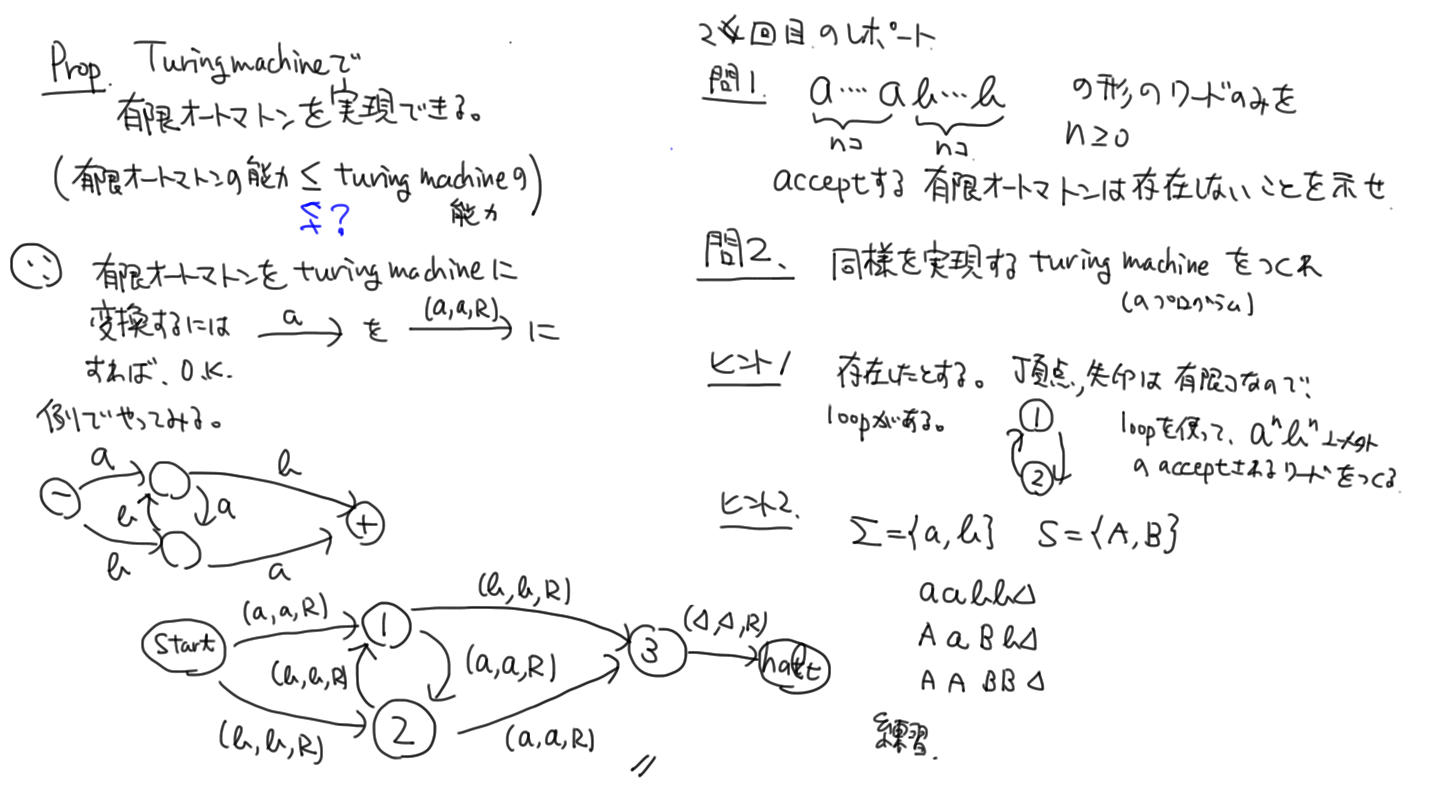 Prop. Turing machineで
有限オートマトンを実現できる。
(有限オートマトンの能力 ≤ turing machineの能力)
≨?
∵ 有限オートマトンを turing machineに
変換するには a を (a,a,R) に
すれば、O.K.
例でやってみる。
a b
− b a +
b a
(b,b,R)
(a,a,R) 1 (Δ,Δ,R)
Start (b,b,R) (a,a,R) 3 halt
2
(b,b,R) (a,a,R)
//
2回目のレポート
問1. a‥‥a b‥‥b の形のワードのみを
nコ nコ n≥0
acceptする有限オートマトンは存在しないことを示せ
問2. 同様を実現する turing machine をつくれ
(のプログラム)
ヒント1 存在したとする。頂点,矢印は有限コなので、
loopがある。 1 2
loopを使って、aⁿbⁿ以外
の acceptされるワードをつくる
ヒント2. Σ={a,b} S={A,B}
aabbΔ
AaBbΔ
AABBΔ
練習.